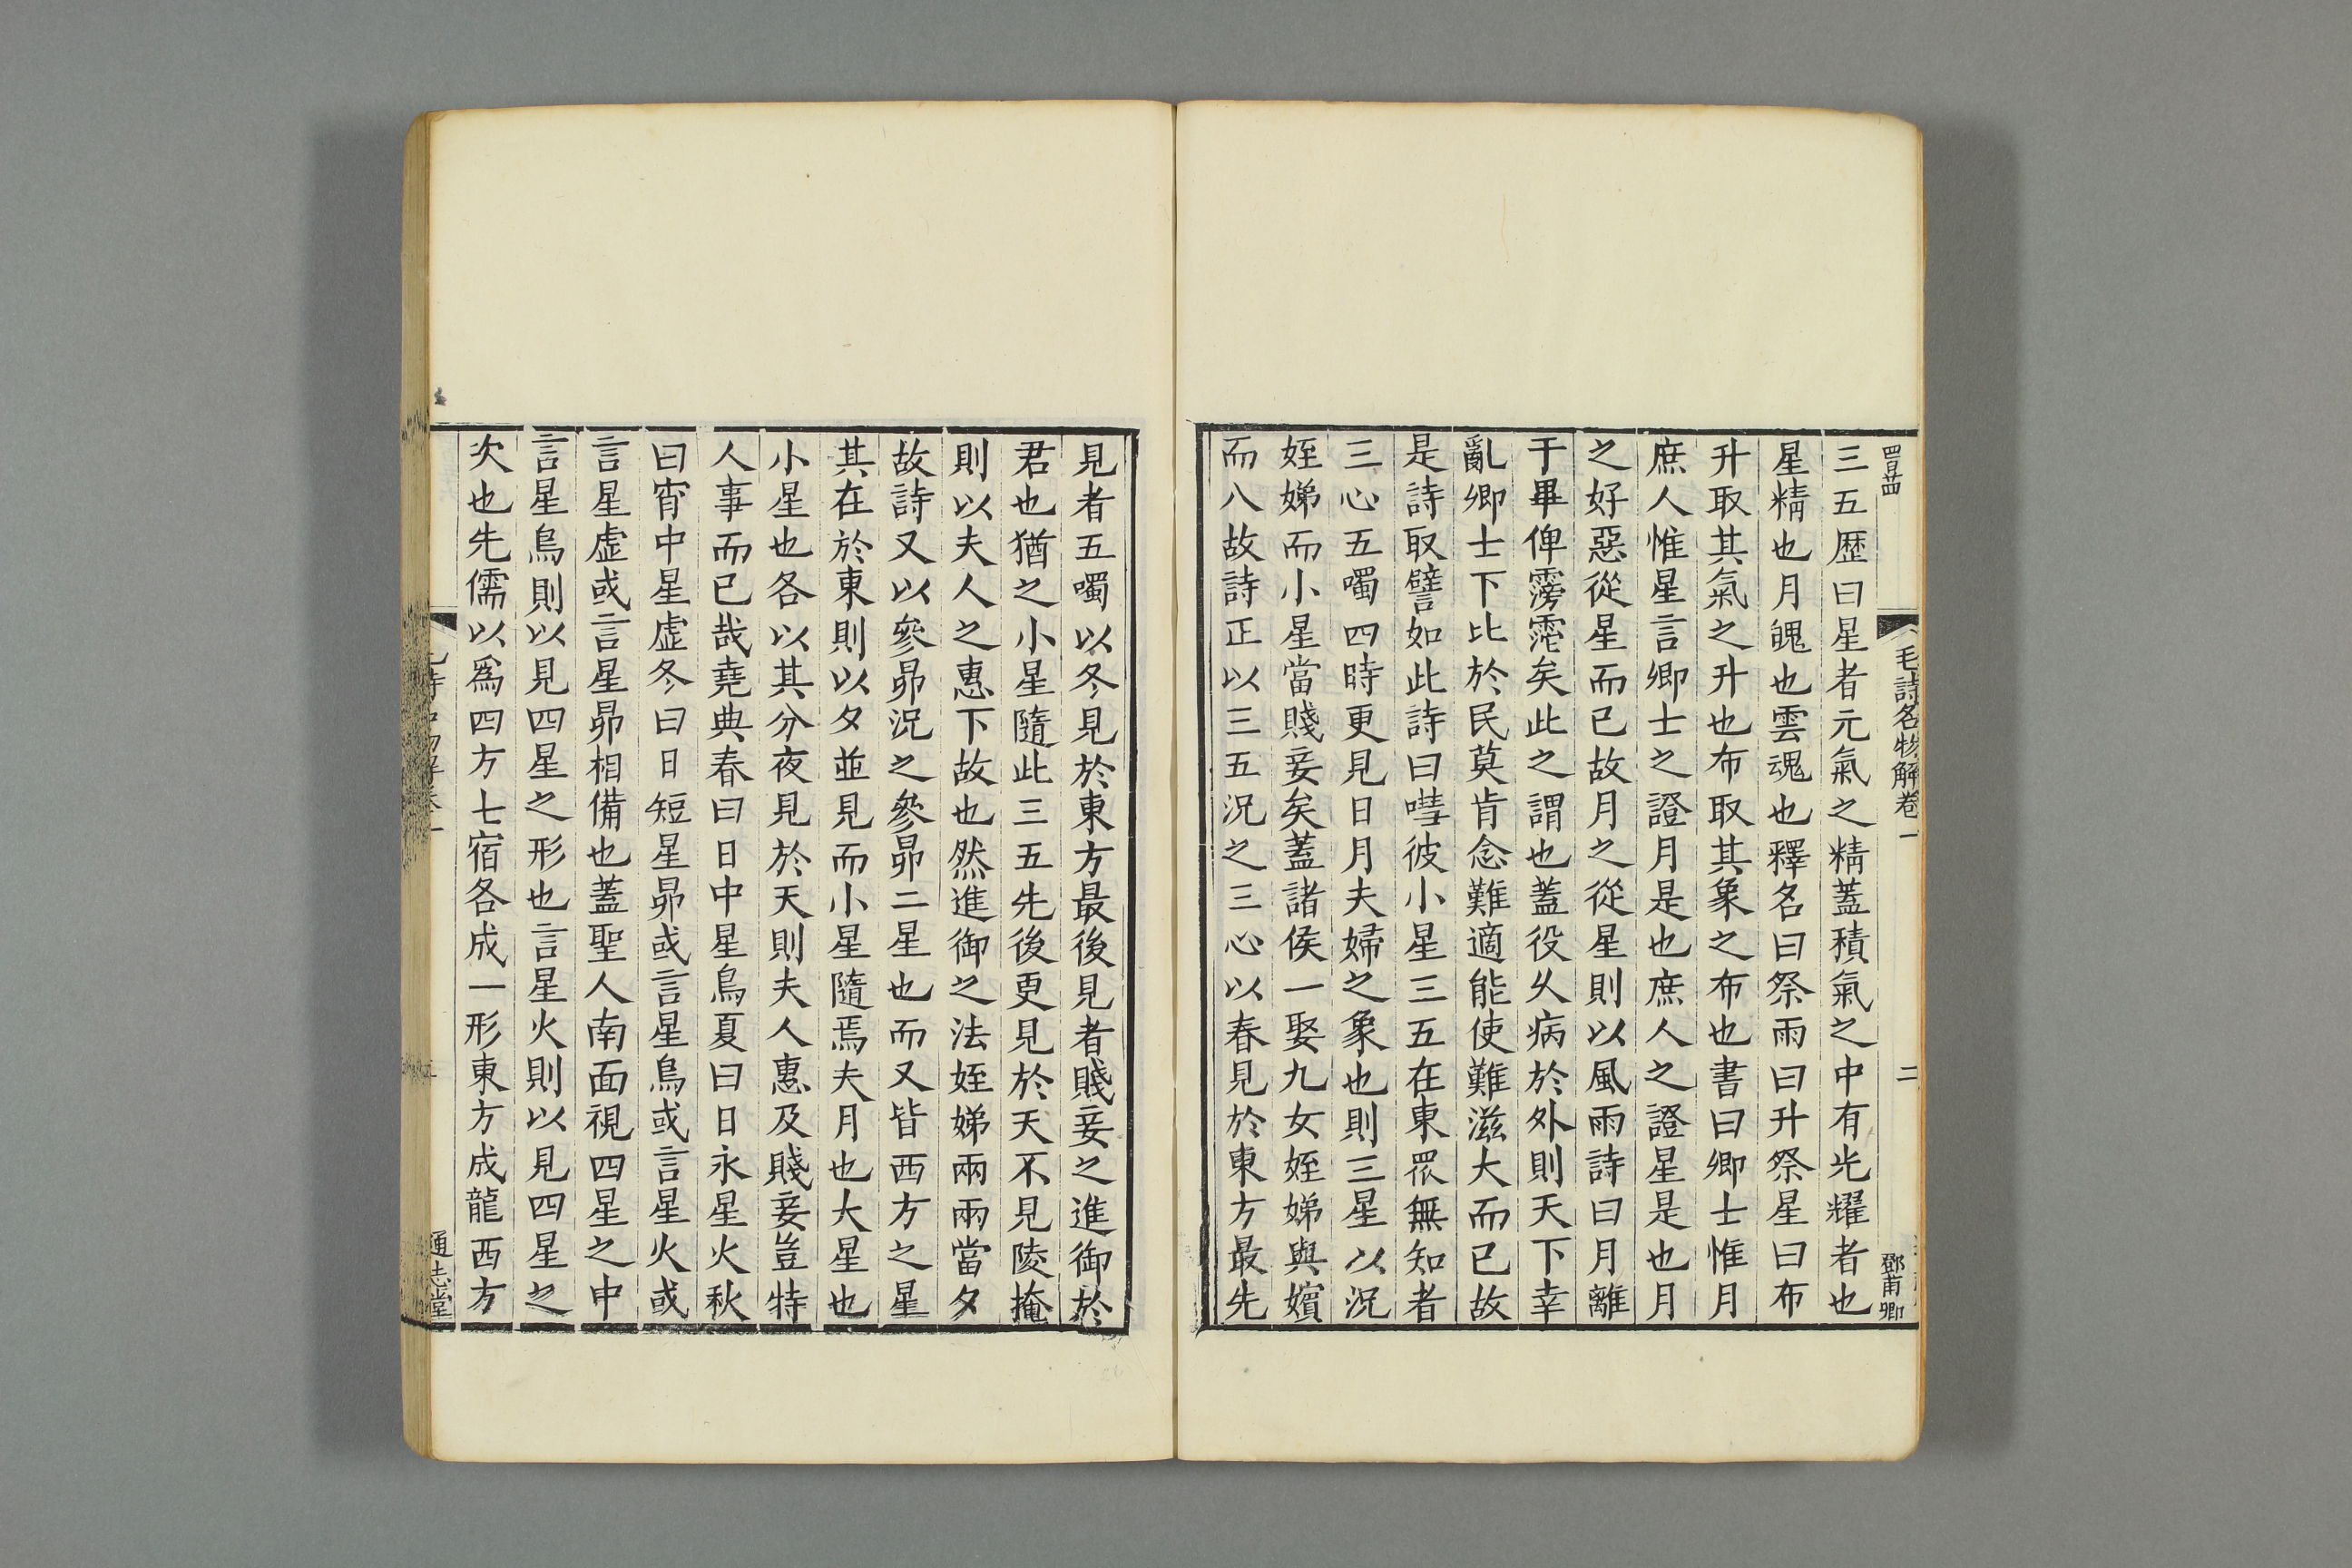 毛詩名物解卷一
二
鄧甫卿
三五歷曰星者元氣之精蓋積氣之中有光耀者也
星精也月魄也雲魂也釋名曰祭雨曰升祭星曰布
升取其氣之升也布取其象之布也書曰卿士惟月
庶人惟星言卿士之證月是也庶人之證星是也月
之好惡從星而已故月之從星則以風雨詩曰月離
于畢俾滂沱矣此之謂也蓋役久病於外則天下幸
亂卿士下比於民莫肯念難適能使難滋大而已故
是詩取譬如此詩曰嘒彼小星三五在東眾無知者
三心五噣四時更見日月夫婦之象也則三星以況
姪娣而小星當賤妾矣蓋諸侯一娶九女姪娣與嬪
而八故詩正以三五況之三心以春見於東方最先
見者五噣以冬見於東方最後見者賤妾之進御於
君也猶之小星隨此三五先後更見於天不見陵掩
則以夫人之惠下故也然進御之法姪娣兩兩當夕
故詩又以參昴況之參昴二星也而又皆西方之星
其在於東則以夕並見而小星隨焉夫月也大星也
小星也各以其分夜見於天則夫人惠及賤妾豈特
人事而已哉堯典春曰日中星鳥夏曰日永星火秋
曰宵中星虛冬曰日短星昴或言星鳥或言星火或
言星虛或言星昴相備也蓋聖人南面視四星之中
言星鳥則以見四星之形也言星火則以見四星之
次也先儒以爲四方七宿各成一形東方成龍西方
通志堂